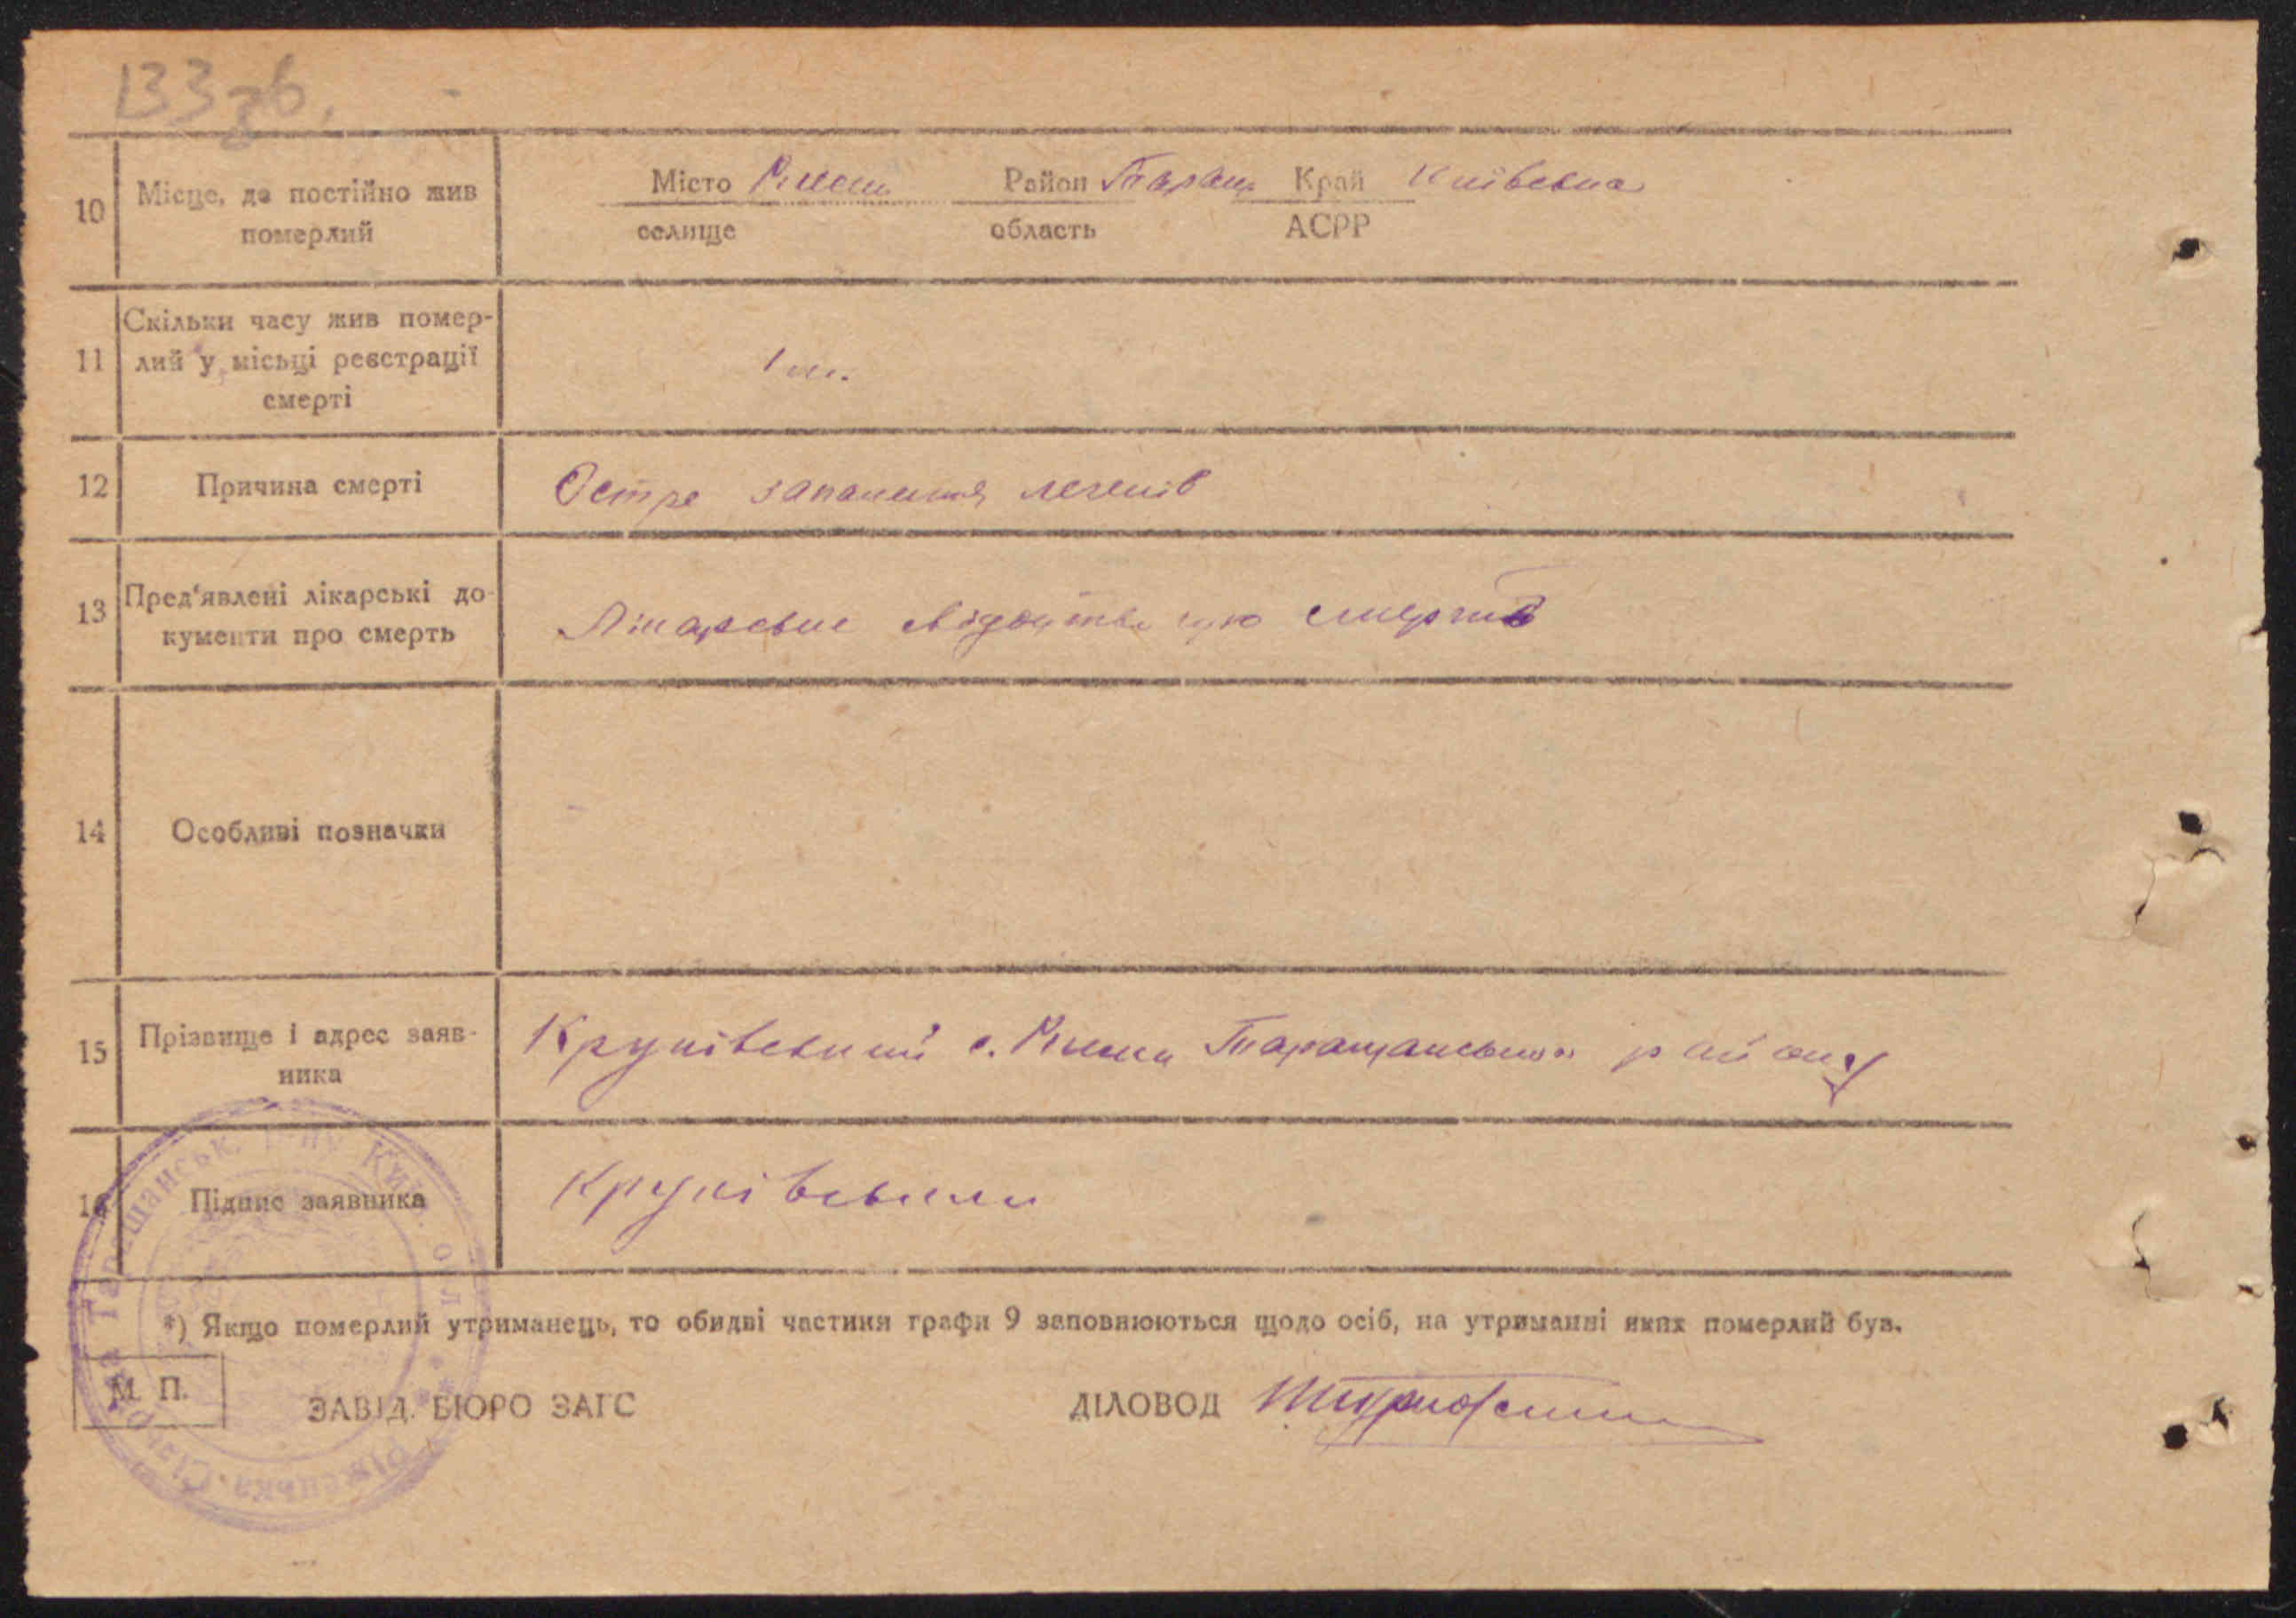 133 зв.
10 Місце, де постійно жив померлий
Місто Ріжки Район Таращ Край Київська
селище область АСРР
11 Скільки часу жив помер-
лий у місьці реєстрації
смерті
1 м.
12 Причина смерті Остре запалення легенів
13 Пред'явлені лікарські до-
кументи про смерть
Лікарське свідоцтво про смерть
14 Особливі позначки
15 Прізвище і адрес заяв-
ника
с. Ріжки Таращанського району
16 Підпис заявника
*) Якщо померлий утриманець, то обидві частини графи 9 заповнюються щодо осіб, на утриманні яких померлий був.
М. П.
ЗАВІД. БЮРО ЗАГС ДІЛОВОД